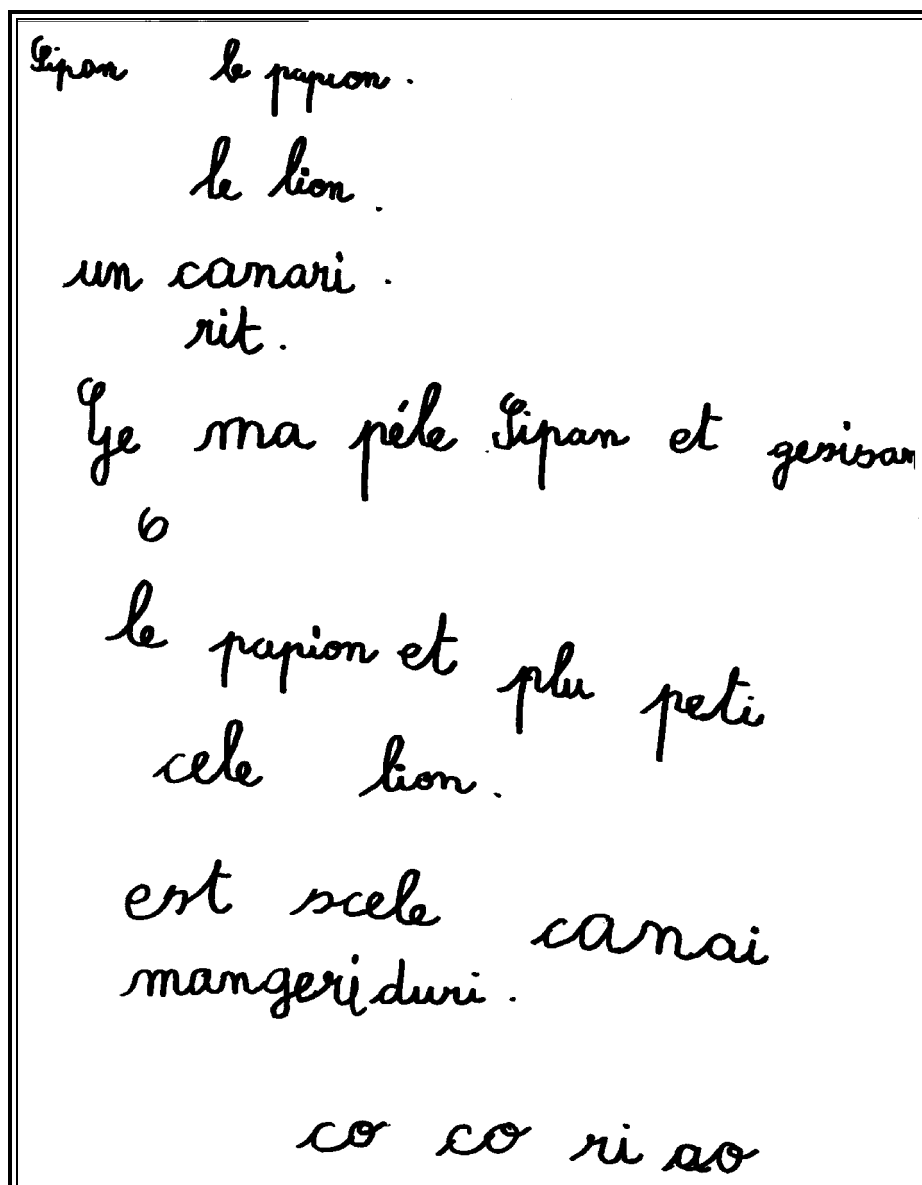 Sipan le papion.
le lion.
un canari.
rit.
Ge ma péle Sipan et gesisan
6
le papion et plu peti
cele lion.
est scele canai
mangeri duri.
co co ri ao